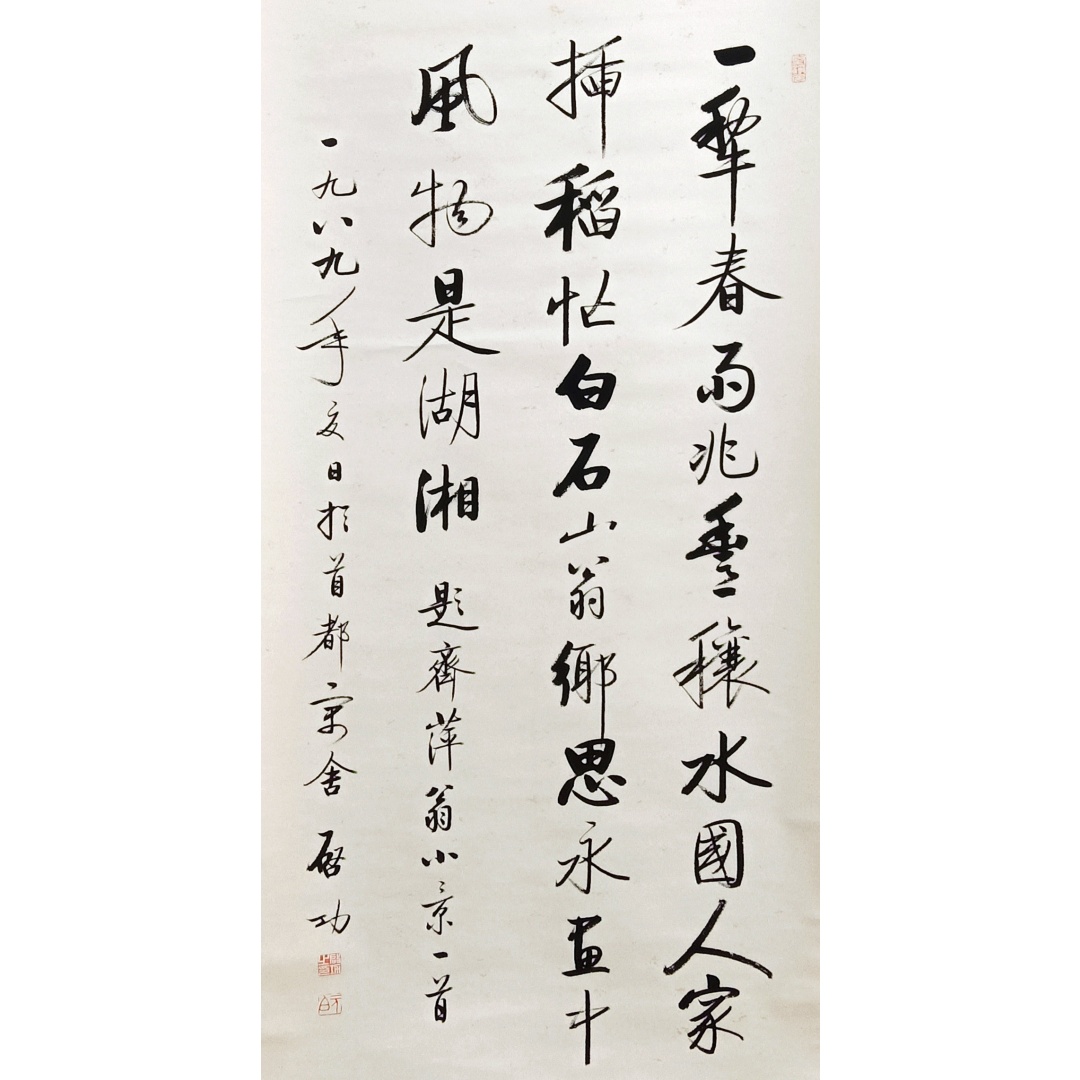 一犂春雨兆豐穰水國人家
插稻忙白石山翁鄉思永畫中
風物是湖湘 題齊萍翁小景一首
一九八九年夏日於首都寓舍 啓功